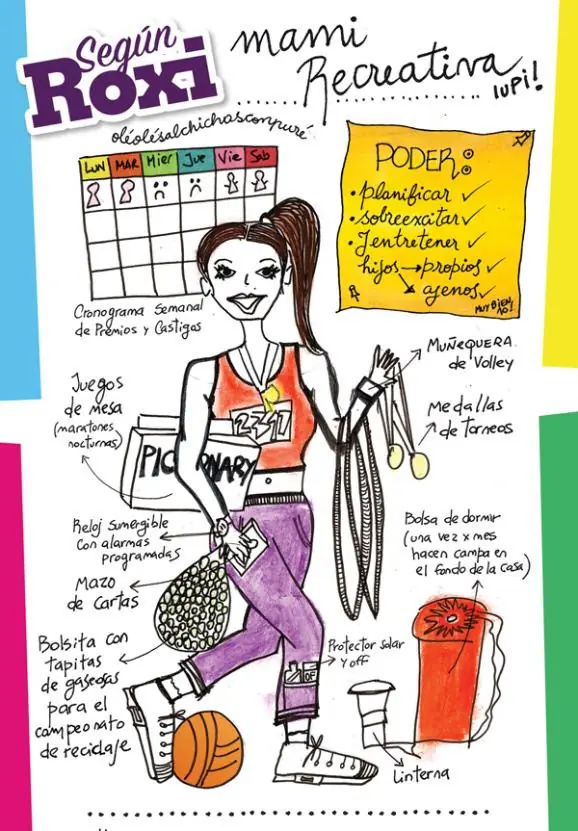 Según
Roxi
mami
Recreativa
iupi!
oléolésalchichasconpuré
LUN MAR Mier Jue Vie Sab
Cronograma Semanal
de Premios y Castigos
PODER:
• planificar ✓
• sobreexcitar ✓
• entretener ✓
hijos → propios ✓
ajenos ✓
MUY BIEN
10!
MUÑEQUERA
de Volley
Medallas
de Torneos
Juegos
de mesa
(maratones
nocturnas)
PICTIONARY
2317
Reloj sumergible
con alarmas
programadas
Mazo
de cartas
Bolsita con
tapitas
de gaseosas
para el
campeonato
de reciclaje
Bolsa de dormir
(una vez x mes
hacen campa en
el fondo de la casa)
Protector solar
y off
OF
Linterna